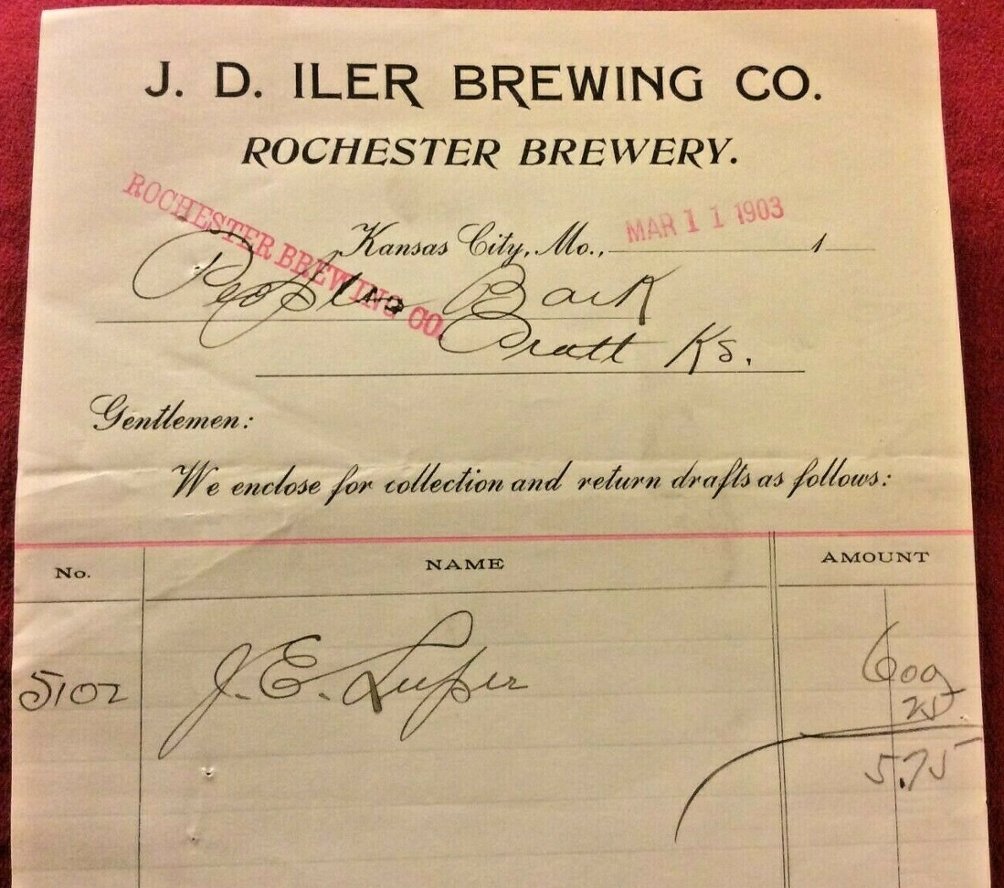 J. D. ILER BREWING CO.
ROCHESTER BREWERY.
ROCHESTER BREWING CO.
Kansas City, Mo., MAR 11 1903 1
Peoples Bank
Pratt Ks.
Gentlemen:
We enclose for collection and return drafts as follows:
No. NAME AMOUNT
5102 J. E. Luper 600
25
5.75